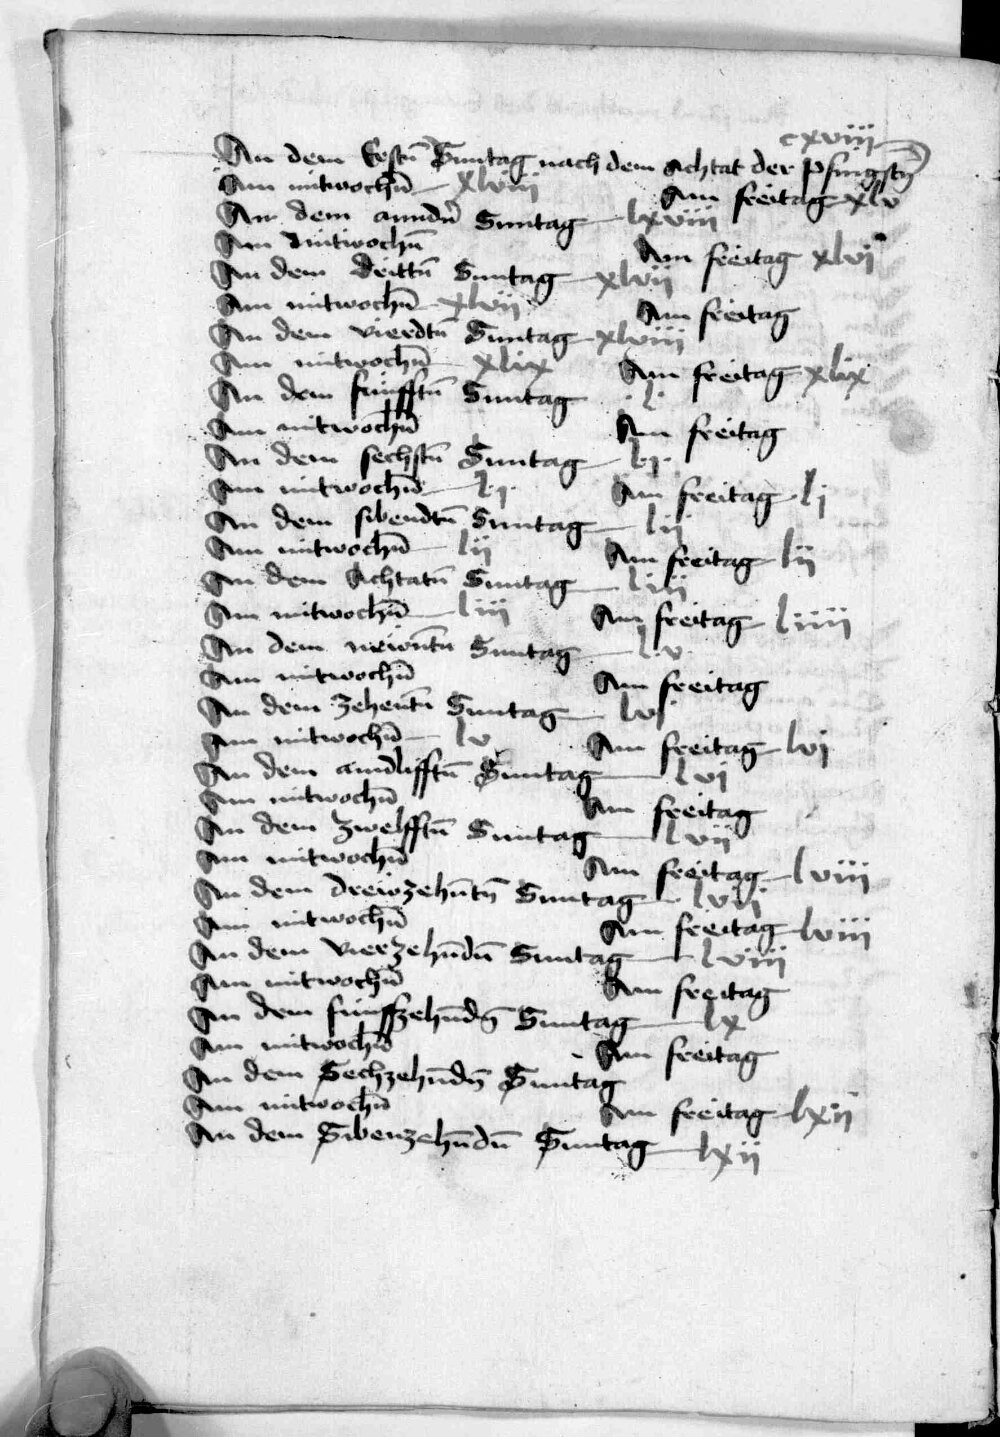 cxviii
An dem Erstn̄ Suntag nach dem achtat der pfingstn̄
Am mitwochn̄ xlviii Am freitag xlv
An dem anndn̄ Suntag lxviii
Am mitwochn̄ Am freitag xlvi
An dem drittn̄ Suntag xlvii
Am mitwochn̄ xlvii Am freitag
An dem vierdtn̄ Suntag xlviii
Am mitwochn̄ xlix Am freitag xlix
An dem funfftn̄ Suntag .l.
Am mitwochn̄ Am freitag
An dem sechstn̄ Suntag li.
Am mitwochn̄ li. Am freitag lj
An dem sibendtn̄ Suntag lij
Am mitwochn̄ lij Am freitag lij
An dem Achtatn̄ Suntag liii
Am mitwochn̄ liii Am freitag liiii
An dem newntn̄ Suntag lv
Am mitwochn̄ Am freitag
An dem zehentn̄ Suntag lvj
Am mitwochn̄ lv Am freitag lvj
An dem aindlifftn̄ Suntag lvj
Am mitwochn̄ Am freitag
An dem zwelfftn̄ Suntag lvii
Am mitwochn̄ Am freitag lviii
An dem dreiozehn̄tn̄ Suntag lvij
Am mitwochn̄ Am freitag lviii
An dem vierzehn̄dn̄ Suntag lviii
Am mitwochn̄ Am freitag
An dem funffzehn̄dn̄ Suntag lx
Am mitwochn̄ Am freitag
An dem Sechzehn̄dn̄ Suntag
Am mitwochn̄ Am freitag lxii
An dem Sibenzehn̄dn̄ Suntag lxii